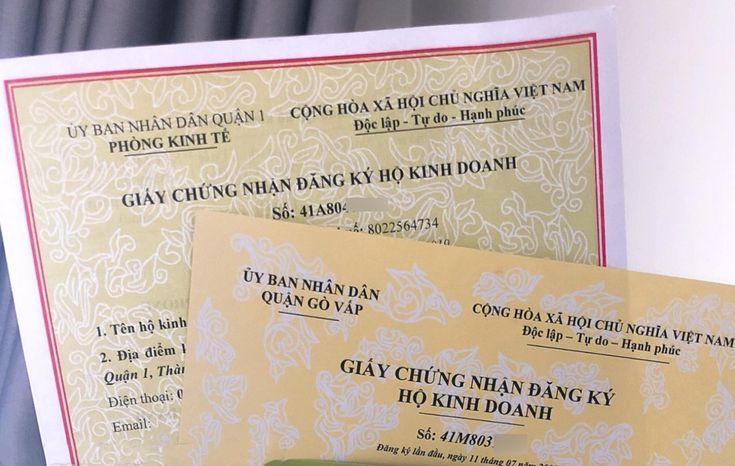 ỦY BAN NHÂN DÂN QUẬN 1
PHÒNG KINH TẾ
CỘNG HÒA XÃ HỘI CHỦ NGHĨA VIỆT NAM
Độc lập - Tự do - Hạnh phúc
GIẤY CHỨNG NHẬN ĐĂNG KÝ HỘ KINH DOANH
Số: 41A804
số: 8022564734
1. Tên hộ kinh
2. Địa điểm
Quận 1, Thàn
Điện thoại: 0
Email:
ỦY BAN NHÂN DÂN
QUẬN GÒ VẤP
CỘNG HÒA XÃ HỘI CHỦ NGHĨA VIỆT NAM
Độc lập – Tự do – Hạnh phúc
GIẤY CHỨNG NHẬN ĐĂNG KÝ
HỘ KINH DOANH
Số: 41M803
Đăng ký lần đầu, ngày 11 tháng 07 năm